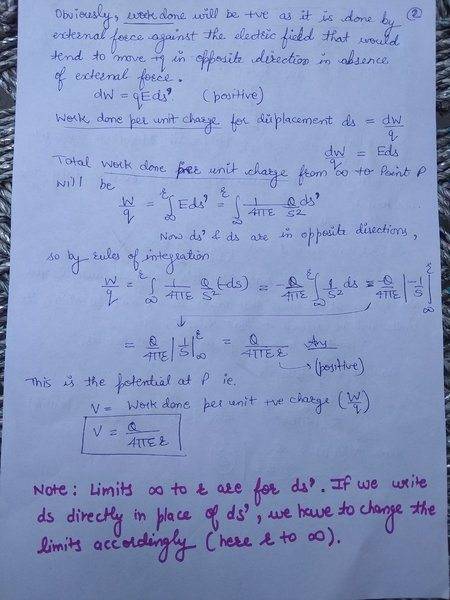 Obviously, work done will be +ve as it is done by ②
external force against the electric field that would
tend to move +q in opposite direction in absence
of external force.
dW = qEds' (positive)
Work done per unit charge for displacement ds = dW/q
dW/q = Eds
Total work done per unit charge from ∞ to Point P
will be
W/q = ∫_∞^r Eds' = ∫_∞^r 1/4πε Q/S² ds'
Now ds' & ds are in opposite directions,
so by rules of integration
W/q = ∫_∞^r 1/4πε Q/S² (-ds) = -Q/4πε ∫_∞^r 1/S² ds = -Q/4πε |-1/S|_∞^r
↓
= Q/4πε |1/S|_∞^r = Q/4πεr Ans
→ (positive)
This is the potential at P ie.
V = Work done per unit +ve charge (W/q)
V = Q/4πεr
Note: Limits ∞ to r are for ds'. If we write
ds directly in place of ds', we have to change the
limits accordingly (here r to ∞).